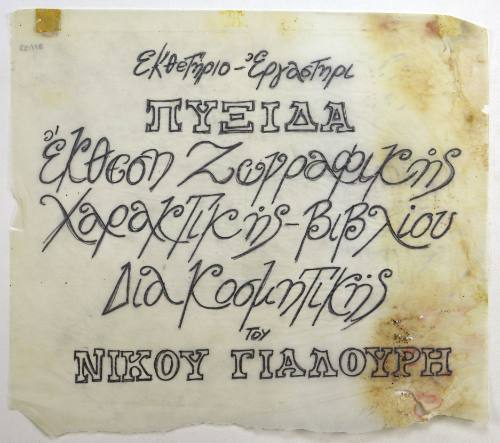 Εκθετήριο - Ἐργαστήρι
ΠΥΞΙΔΑ
Ἔκθεση Ζωγραφικής
Χαρακτικής - Βιβλίου
Διακοσμητικής
του
ΝΙΚΟΥ ΓΙΑΛΟΥΡΗ